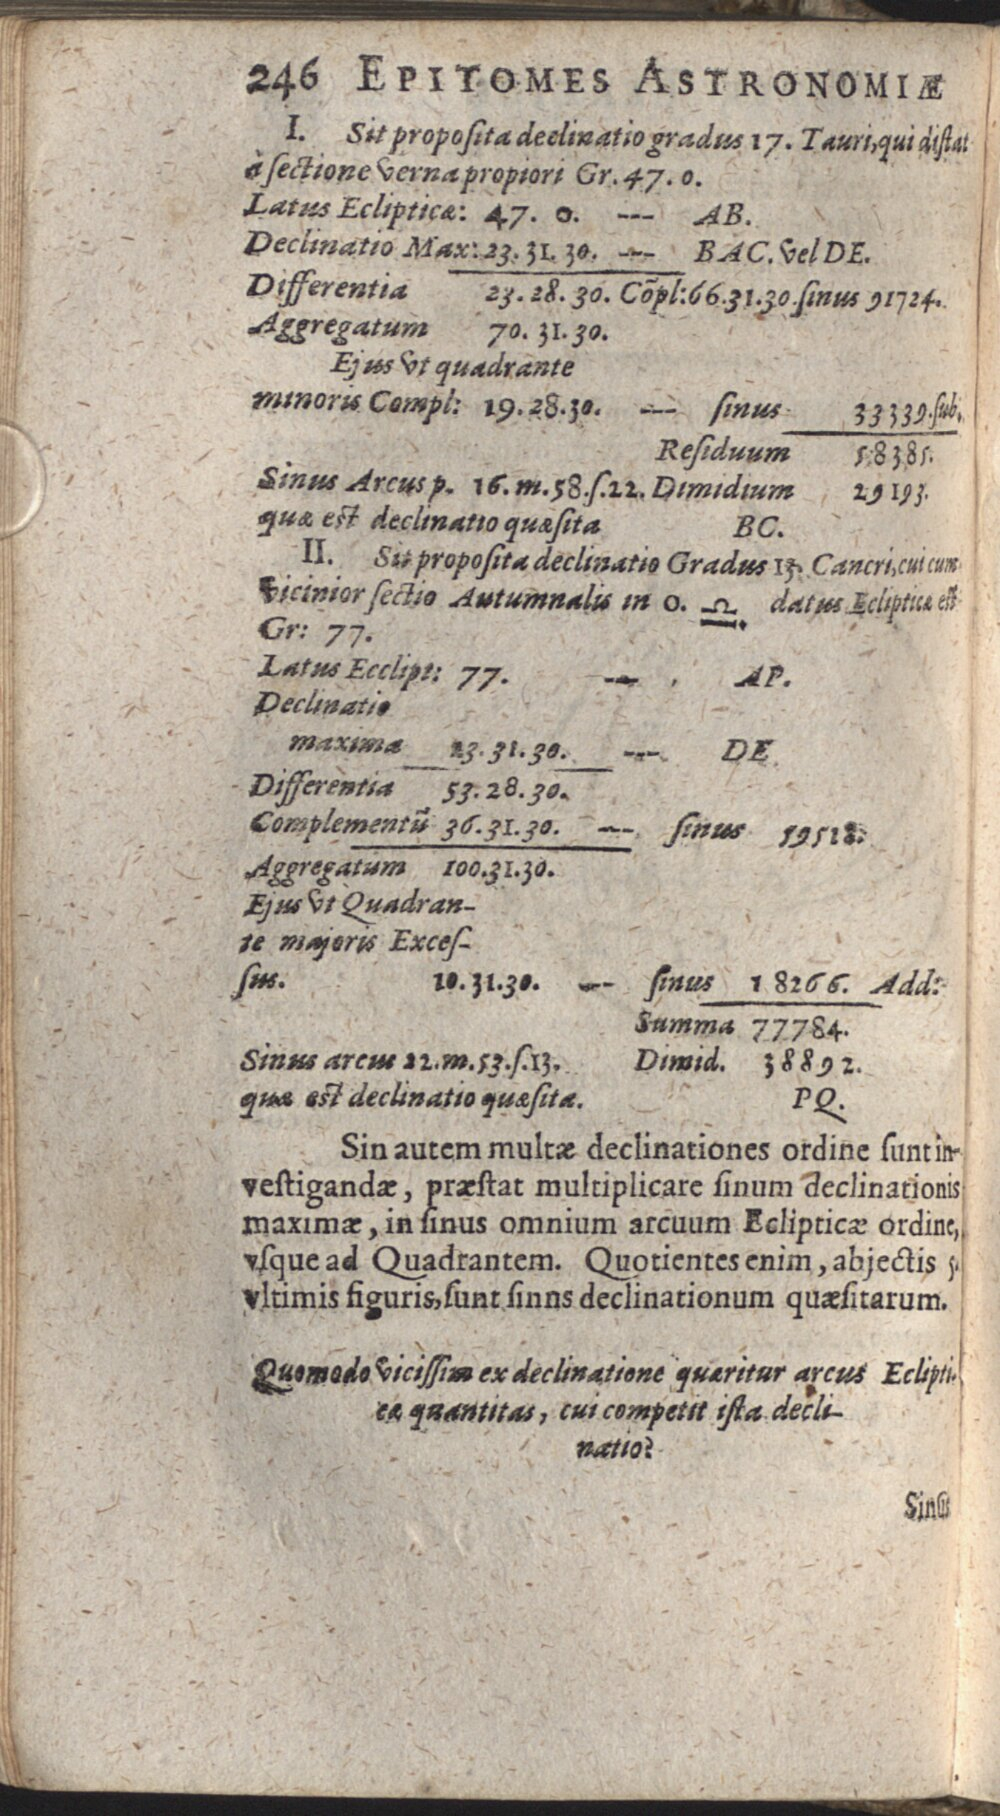 246 EPITOMES ASTRONOMIÆ
I. Sit proposita declinatio gradus 17. Tauri, qui distat
à sectione verna propiori Gr. 47. 0.
Latus Eclipticæ: 47. 0. --- AB.
Declinatio Max: 23. 31. 30. --- BAC. vel DE.
Differentia 23. 28. 30. Cõpl: 66. 31. 30. sinus 91724.
Aggregatum 70. 31. 30.
Ejus vt quadrante
minoris Compl: 19. 28. 30. --- sinus 33339. sub.
Residuum 58385.
Sinus Arcus p. 16. m. 58. s. 22. Dimidium 29193.
quæ est declinatio quæsita BC.
II. Sit proposita declinatio Gradus 13. Cancri, cui cum
vicinior sectio Autumnalis in 0. ♎. datus Eclipticæ est
Gr: 77.
Latus Ecclipt: 77. --- AP.
Declinatio
maxima 23. 31. 30. --- DE
Differentia 53. 28. 30.
Complementũ 36. 31. 30. --- sinus 59518.
Aggregatum 100. 31. 30.
Ejus vt Quadran-
te majoris Exces-
sus. 10. 31. 30. --- sinus 18266. Add:
Summa 77784.
Sinus arcus 22. m. 53. s. 13. Dimid. 38892.
quæ est declinatio quæsita. PQ.
Sin autem multæ declinationes ordine sunt in-
vestigandæ, præstat multiplicare sinum declinationis
maximæ, in sinus omnium arcuum Eclipticæ ordine,
vsque ad Quadrantem. Quotientes enim, abjectis 5.
vltimis figuris, sunt sinns declinationum quæsitarum.
Quomodo vicissim ex declinatione quæritur arcus Eclipti-
cæ quantitas, cui competit ista decli-
natio?
Sinus